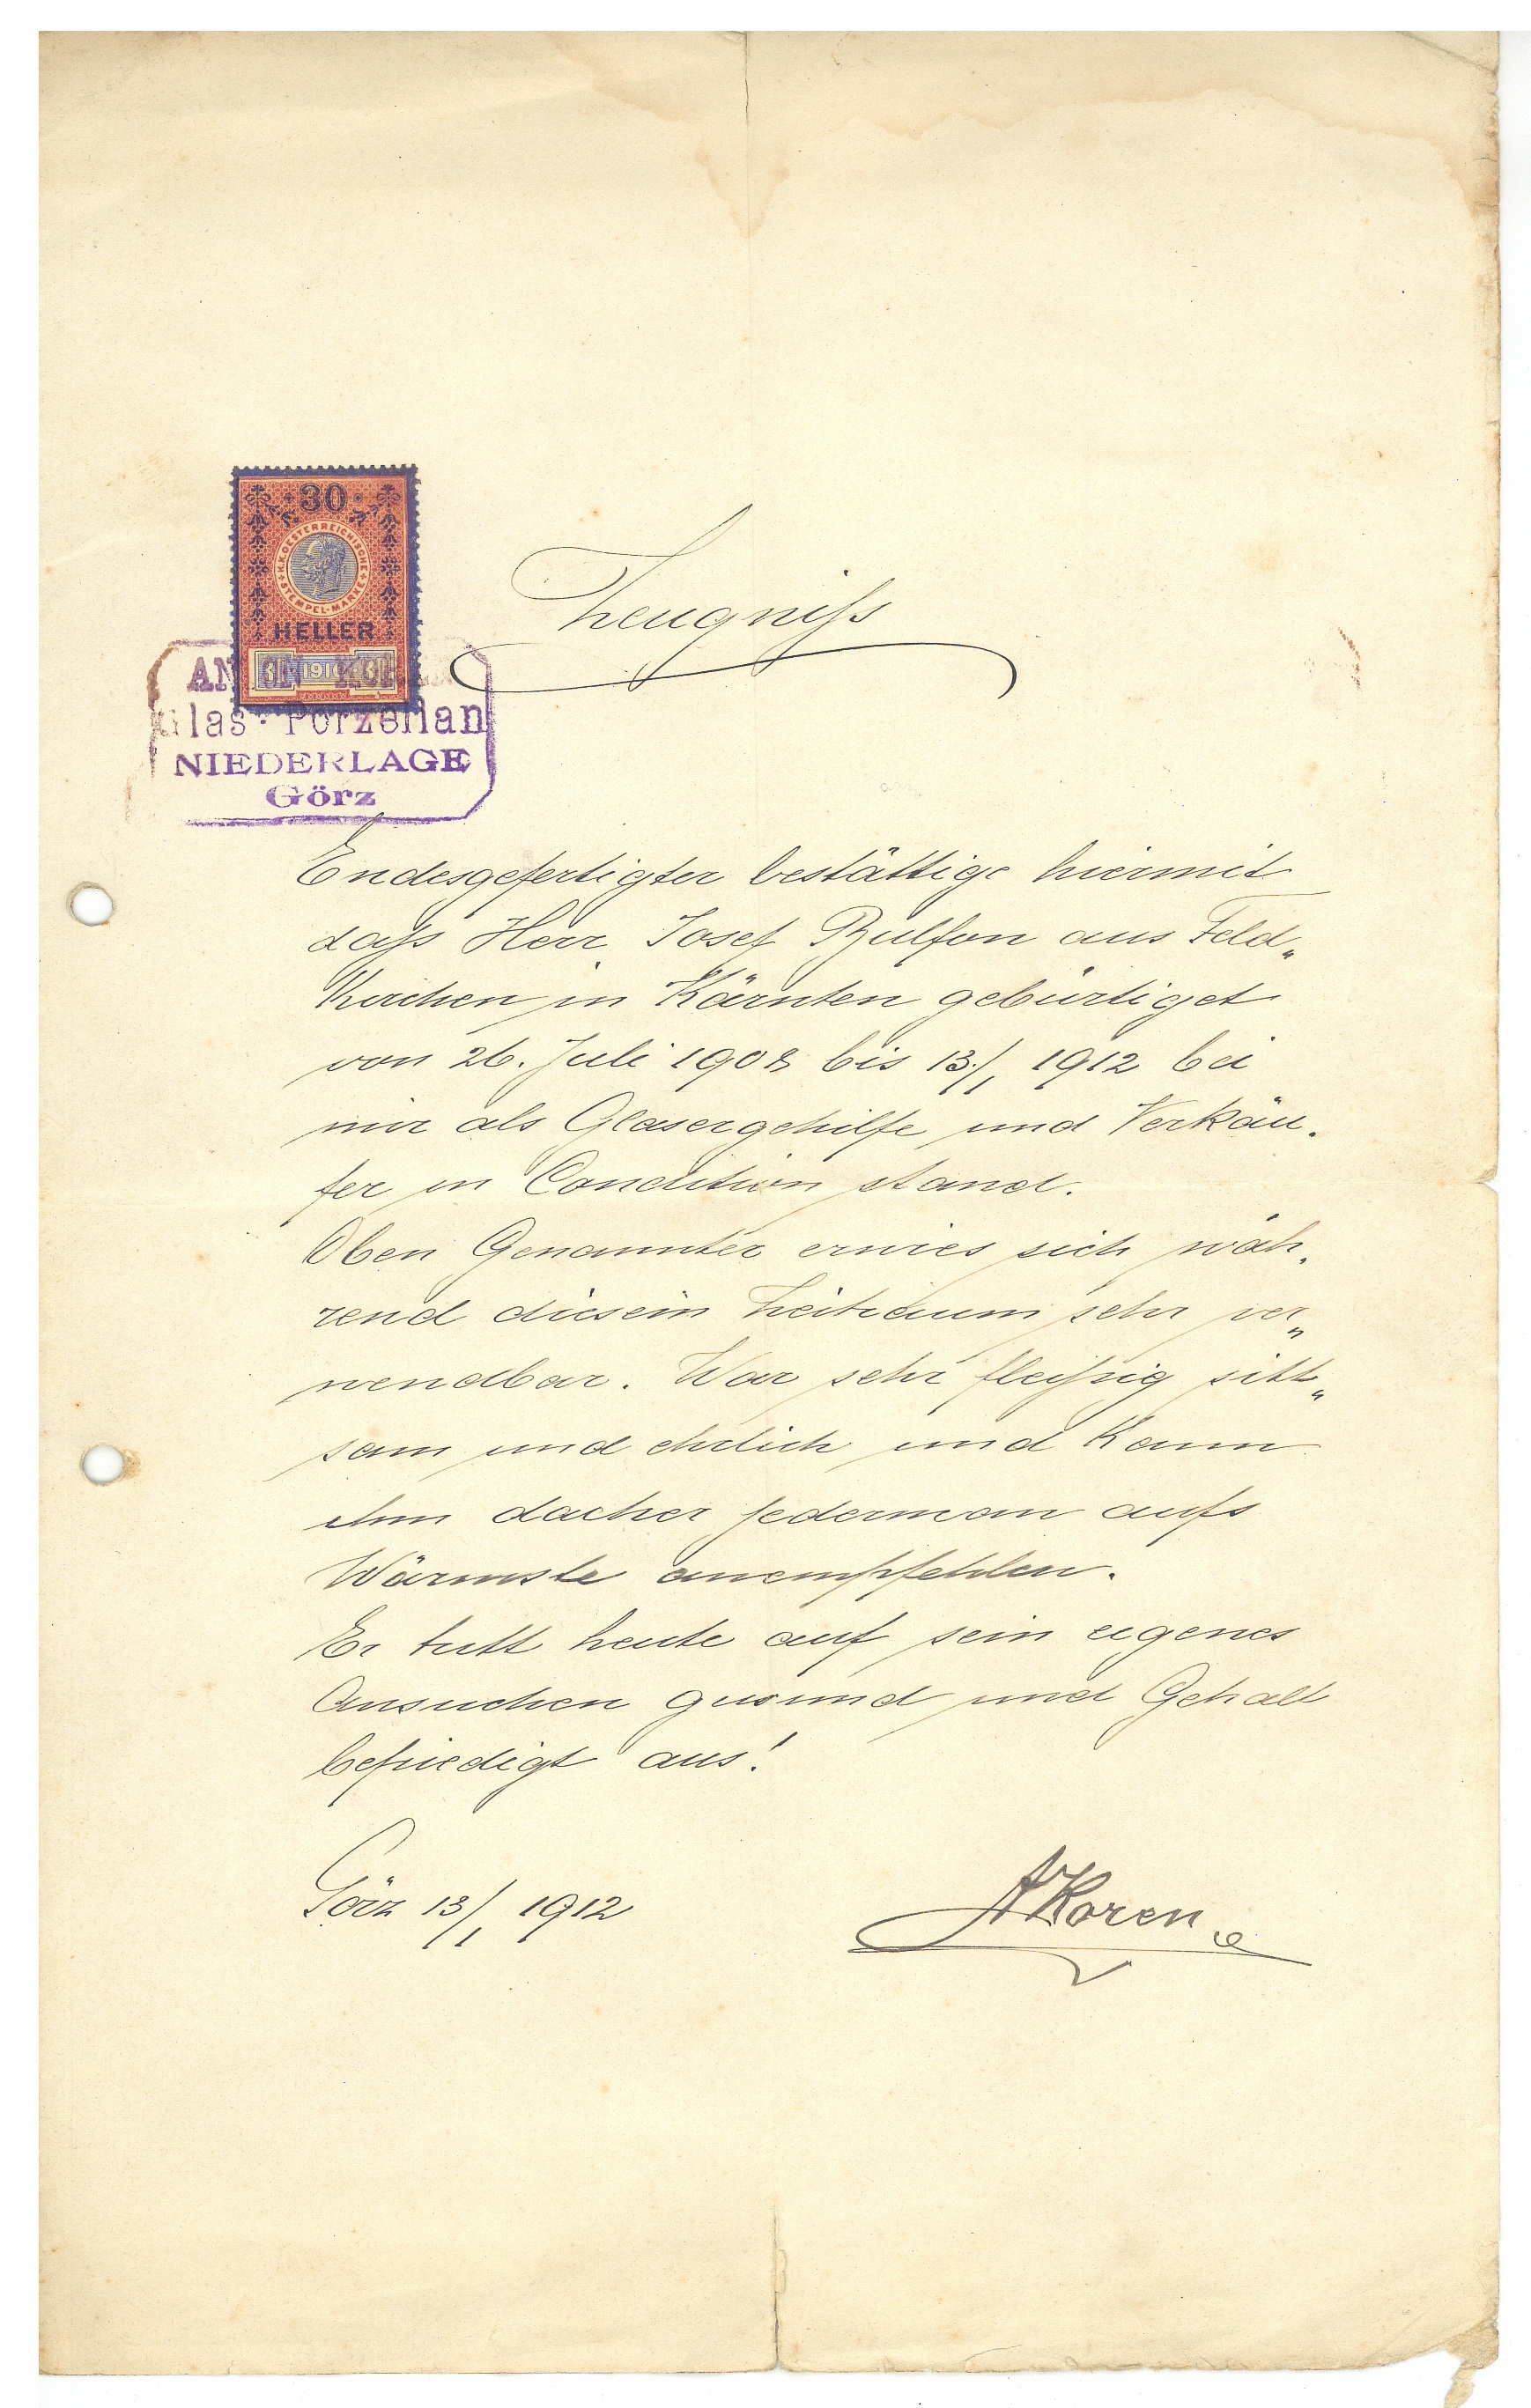 30
K.K.OESTERREICHISCHE
STEMPEL-MARKE
HELLER
1910
ANTON KOREN
Glas- Porzellan
NIEDERLAGE
Görz
Zeugniss
Endesgefertigter bestättige hiermit
dass Herr Josef Bulfon aus Feld„
Kirchen in Kärnten gebürtiget
von 26. Juli 1908 bis 13./1 1912 bei
mir als Glasergehilfe und Verkäu.
fer in Condition stand.
Oben Genannter erwies sich wäh.
rend diesem Zeitraum sehr ver„
wendbar. War sehr fleissig sitt„
sam und ehrlich und Kann
ihm dacher jederman aufs
Wärmste anempfehlen.
Er tritt heute auf sein eigenes
Ansuchen gesund und Gehalt
befriedigt aus!
Görz 13/1 1912
AKoren